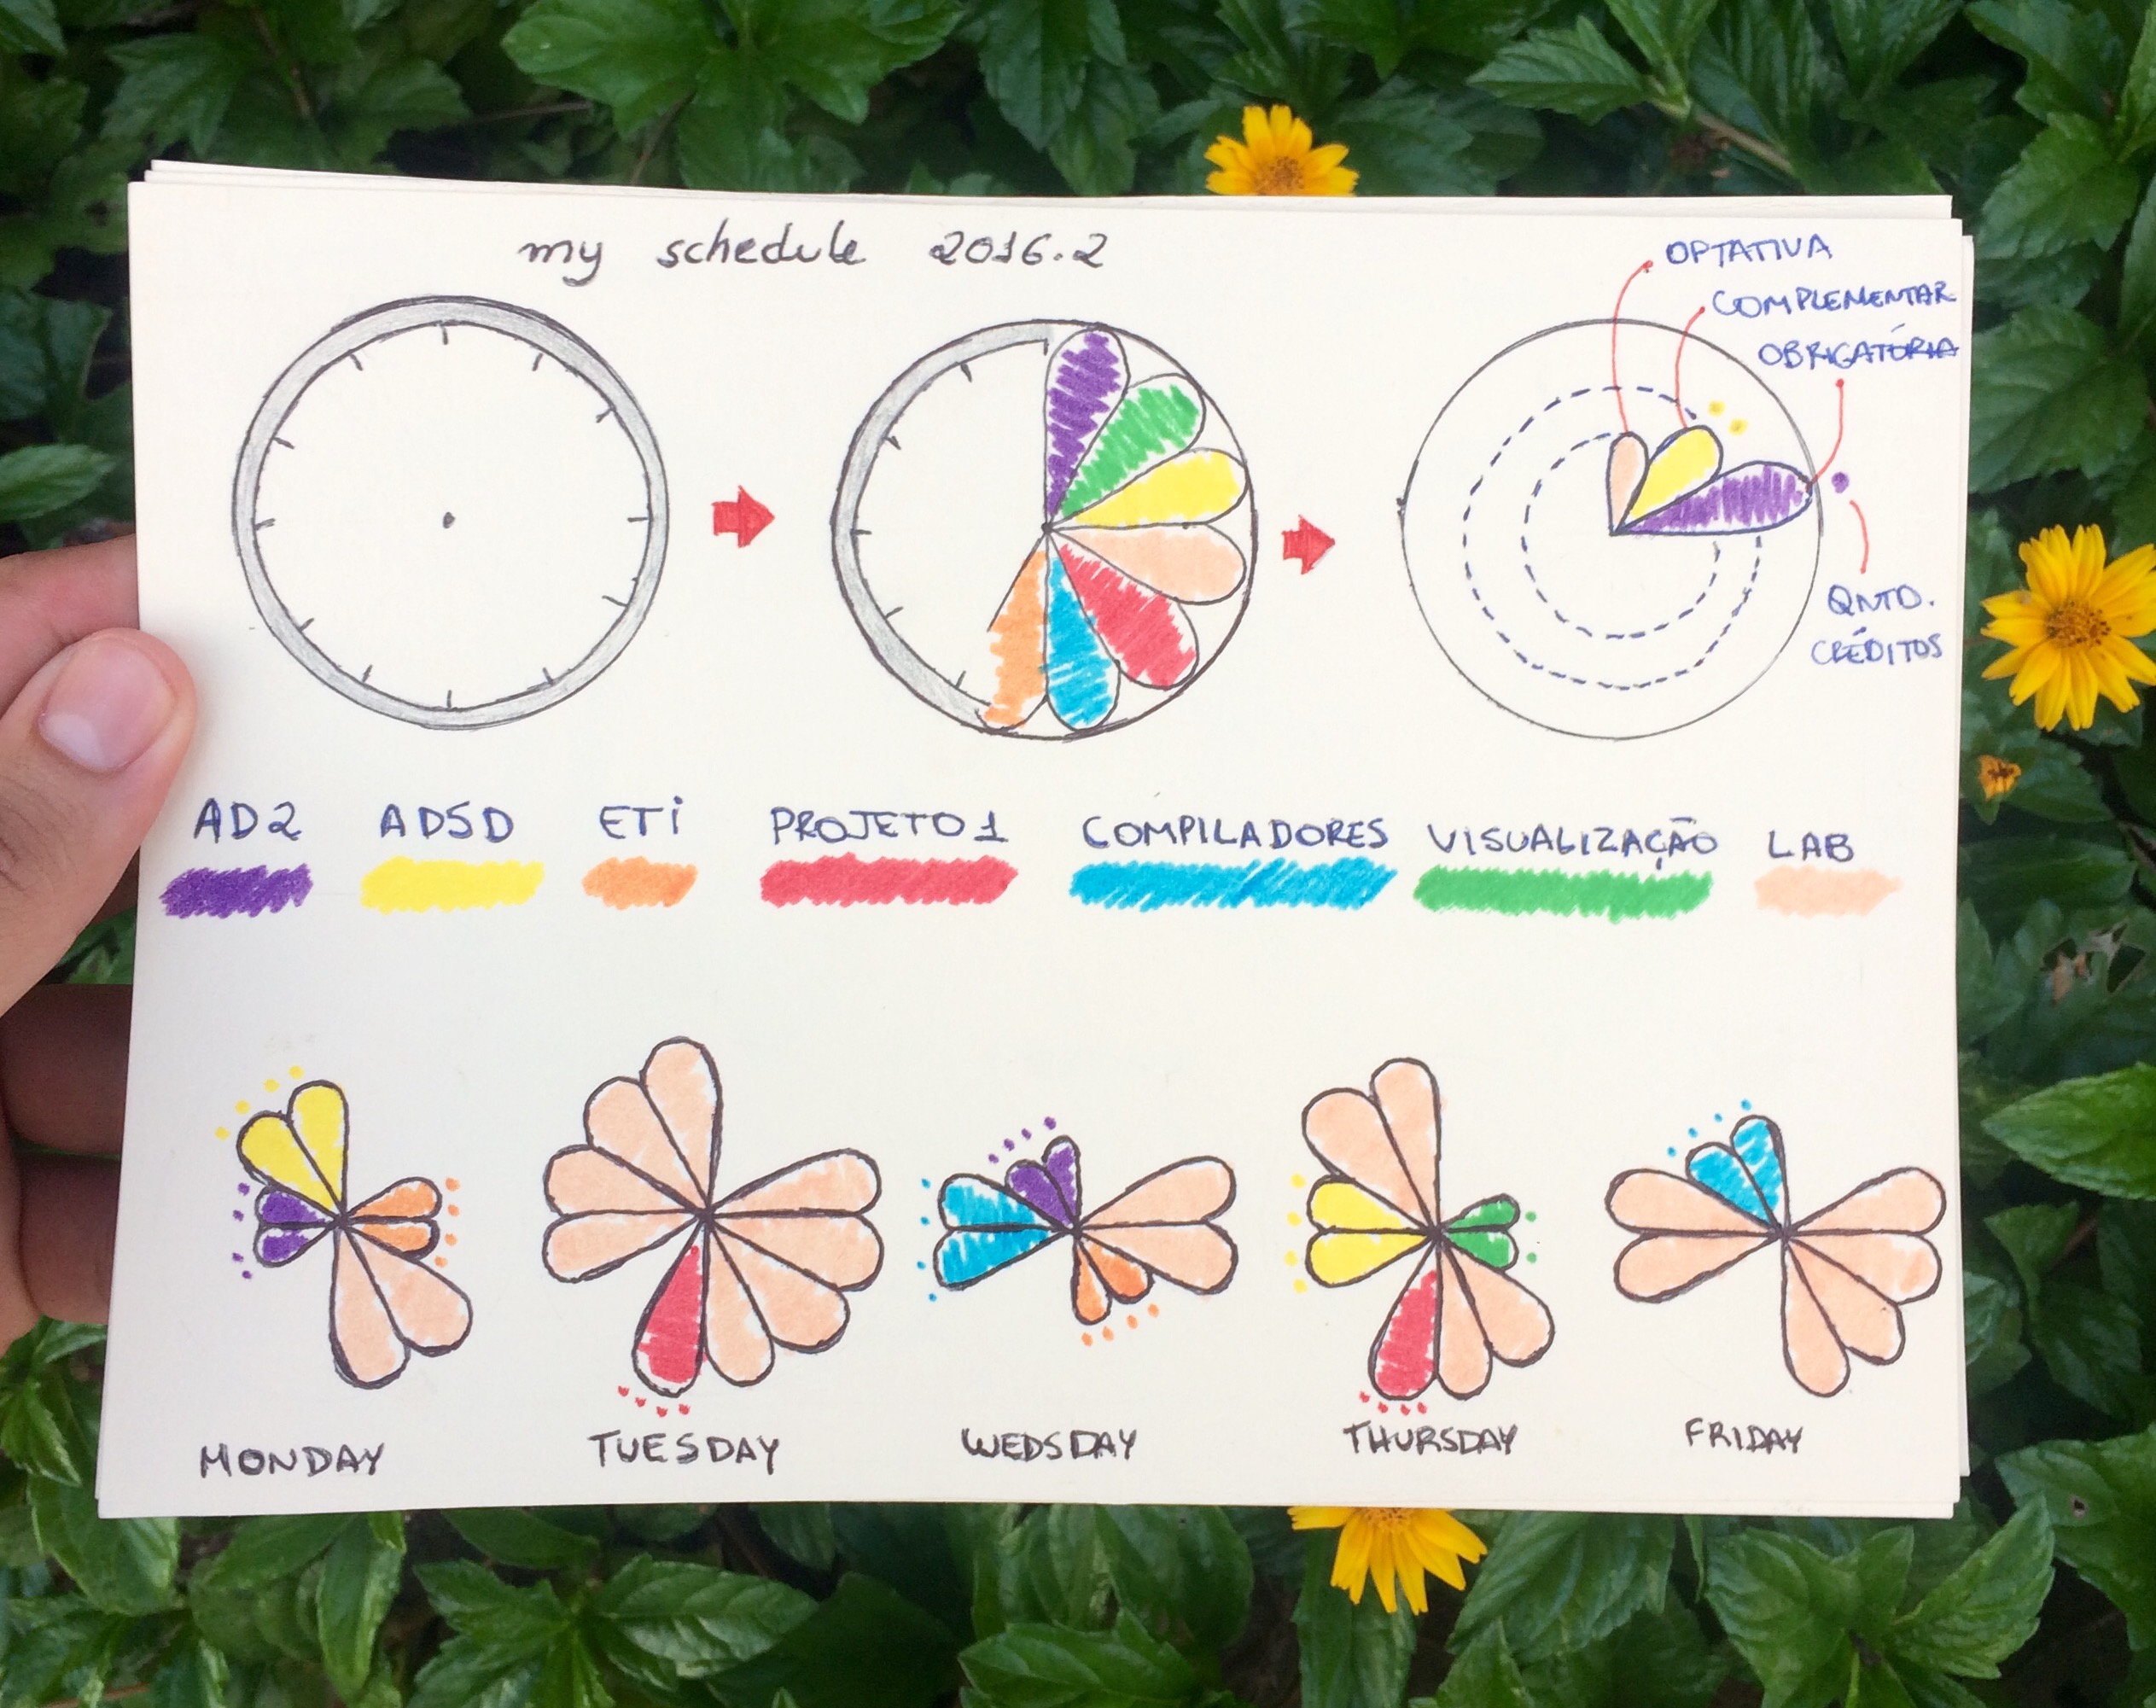 my schedule 2016.2
OPTATIVA
COMPLEMENTAR
OBRIGATÓRIA
QNTD.
CRÉDITOS
AD2 ADSD ETi PROJETO1 COMPILADORES VISUALIZAÇÃO LAB
MONDAY TUESDAY WEDSDAY THURSDAY FRIDAY